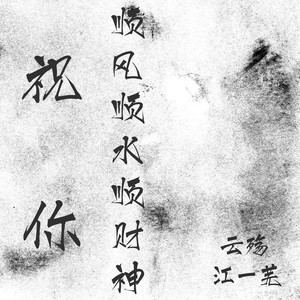 祝你
顺风顺水顺财神
云殇
江一羌